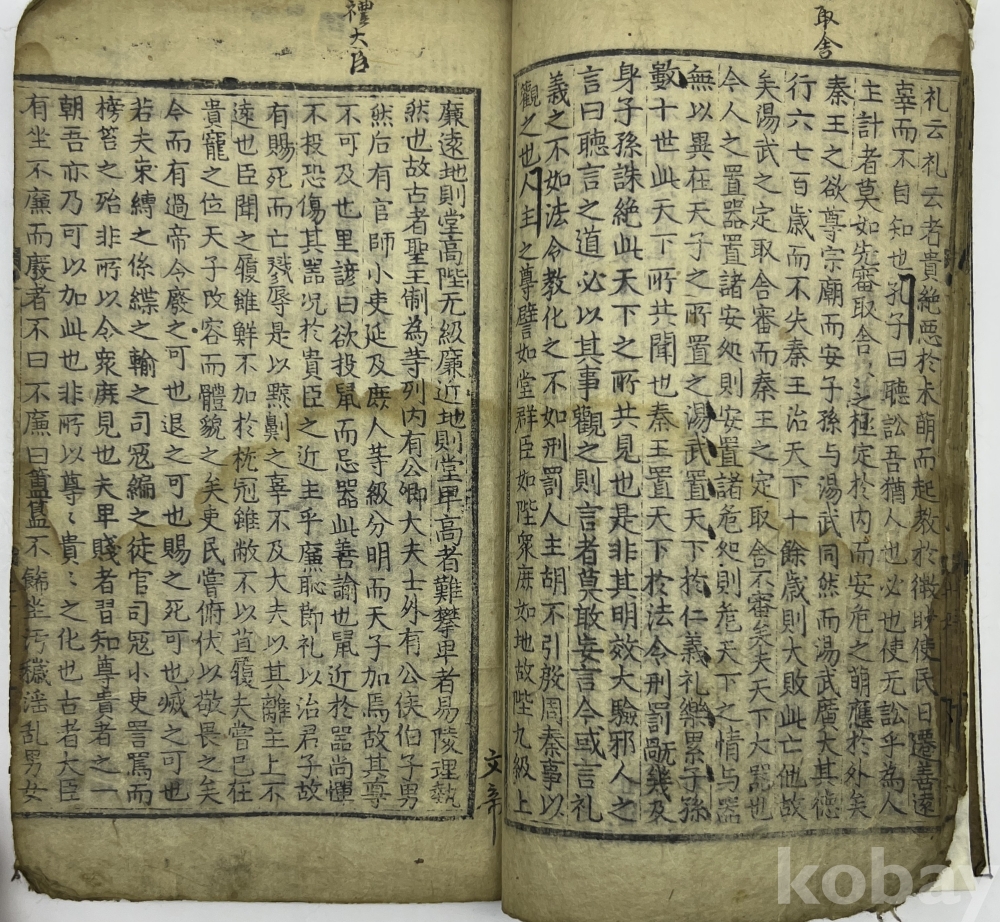 取舍
礼云礼云者貴絶惡於未萌而起教於微眇使民日遷善遠
辜而不自知也孔子曰聽訟吾猶人也必也使无訟乎為人
主計者莫如先審取舍之極定於内而安危之萌應於外矣
秦王之欲尊宗廟而安子孫与湯武同然而湯武廣大其德
行六七百歲而不失秦王治天下十餘歲則大敗此亡他故
矣湯武之定取舍審而秦王之定取舍不審矣夫天下大器也
今人之置器置諸安処則安置諸危処則危天下之情与器
無以異在天子之所置之湯武置天下於仁義礼樂累子孫
數十世此天下所共聞也秦王置天下於法令刑罰旤幾及
身子孫誅絶此天下之所共見也是非其明效大驗邪人之
言曰聽言之道必以其事觀之則言者莫敢妄言今或言礼
義之不如法令教化之不如刑罰人主胡不引殷周秦事以
觀之也人主之尊譬如堂群臣如陛衆庶如地故陛九級上
禮大臣
廉遠地則堂高陛无級廉近地則堂卑高者難攀卑者易陵理埶
然也故古者聖王制為等列内有公卿大夫士外有公侯伯子男
然后有官師小吏延及庶人等級分明而天子加焉故其尊
不可及也里諺曰欲投鼠而忌器此善諭也鼠近於器尚憚
不投恐傷其器况於貴臣之近主乎廉恥節礼以治君子故
有賜死而亡戮辱是以黥劓之辜不及大夫以其離主上不
遠也臣聞之履雖鮮不加於枕冠雖敝不以苴履夫嘗已在
貴寵之位天子改容而體貌之矣吏民嘗俯伏以敬畏之矣
今而有過帝令廢之可也退之可也賜之死可也滅之可也
若夫束縛之係緤之輸之司寇編之徒官司寇小吏詈罵而
榜笞之殆非所以令衆庶見也夫卑賤者習知尊貴者之一
朝吾亦乃可以加此也非所以尊〻貴〻之化也古者大臣
有坐不廉而廢者不曰不廉曰簠簋不飾坐汚穢淫乱男女
kobay